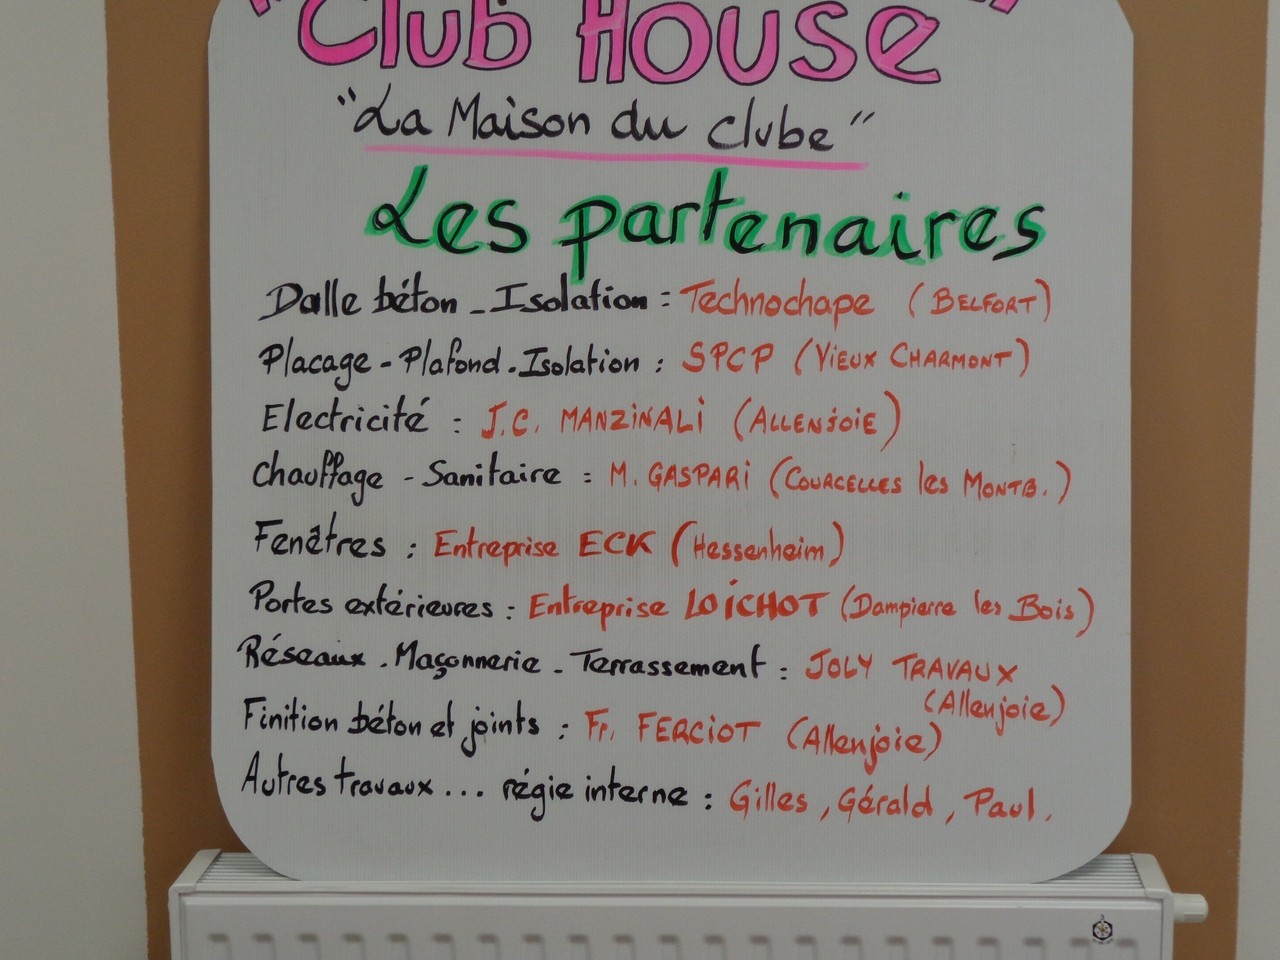 "Club House"
"La Maison du clube"
Les partenaires
Dalle béton - Isolation : Technochape (BELFORT)
Placage - Plafond - Isolation : SPCP (VIEUX CHARMONT)
Electricité : J.C. MANZINALI (ALLENJOIE)
Chauffage - Sanitaire : M. GASPARI (COURCELLES les MONTB.)
Fenêtres : Entreprise ECK (Hessenheim)
Portes extérieures : Entreprise LOICHOT (Dampierre les Bois)
Réseaux - Maçonnerie - Terrassement : JOLY TRAVAUX
(Allenjoie)
Finition béton et joints : Fr. FERCIOT (Allenjoie)
Autres travaux ... régie interne : Gilles, Gérald, Paul.